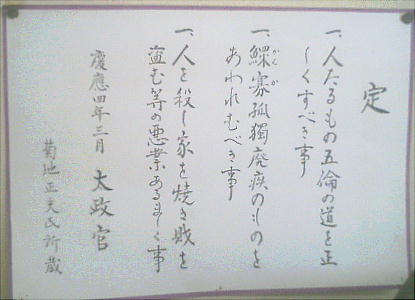 定
一、人たるもの五倫の道を正
しくすべき事
一、鰥寡孤獨廃疾のものを
かんか
あわれむべき事
一、人を殺し家を焼き財を
盗む等の悪業あるまじく事
慶應四年三月 太政官
菊地正夫氏所蔵